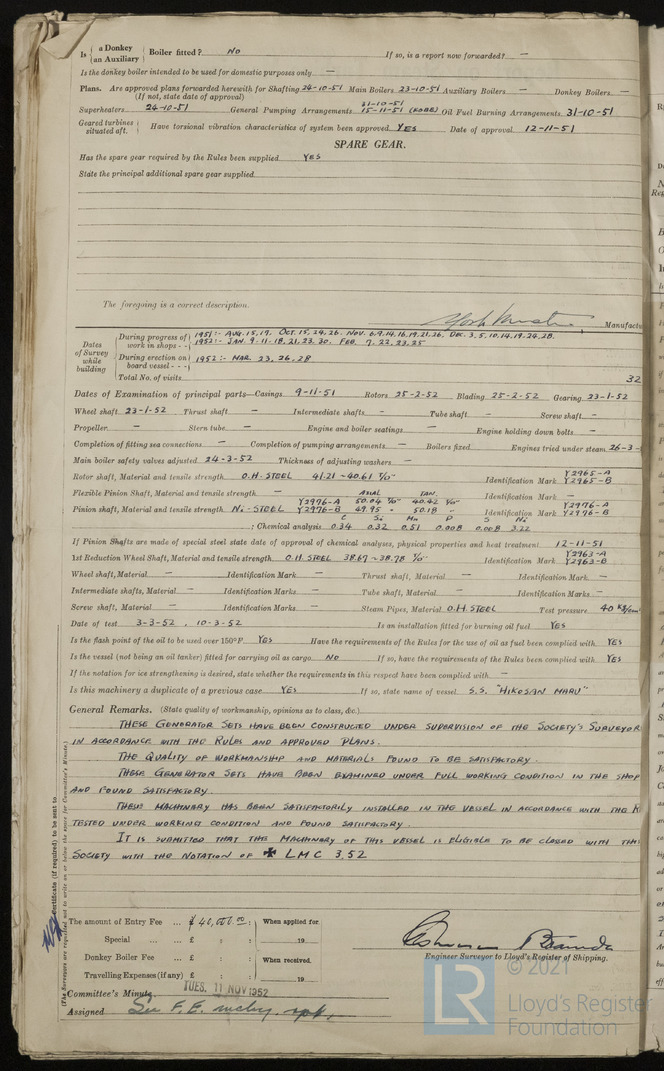 Is { a Donkey / an Auxiliary } Boiler fitted? No If so, is a report now forwarded? —
Is the donkey boiler intended to be used for domestic purposes only —
Plans. Are approved plans forwarded herewith for Shafting 24-10-51 Main Boilers 23-10-51 Auxiliary Boilers — Donkey Boilers —
(If not, state date of approval)
31-10-51
Superheaters 24-10-51 General Pumping Arrangements 15-11-51 (KOBE) Oil Fuel Burning Arrangements 31-10-51
Geared turbines situated aft. } Have torsional vibration characteristics of system been approved YES Date of approval 12-11-51
SPARE GEAR.
Has the spare gear required by the Rules been supplied YES
State the principal additional spare gear supplied
The foregoing is a correct description.
Manufactu
Dates of Survey while building
During progress of work in shops - - 1951:- AUG. 15, 17, OCT. 15, 24, 26. NOV. 6, 9, 14, 16, 19, 21, 26, DEC. 3, 5, 10, 14, 19, 24, 28.
1952:- JAN. 9. 11. 18, 21, 23, 30. FEB. 7, 22, 23, 25
During erection on board vessel - - - 1952:- MAR. 23, 26, 28
Total No. of visits 32
Dates of Examination of principal parts—Casings 9-11-51 Rotors 25-2-52 Blading 25-2-52 Gearing 23-1-52
Wheel shaft 23-1-52 Thrust shaft — Intermediate shafts — Tube shaft — Screw shaft —
Propeller — Stern tube — Engine and boiler seatings — Engine holding down bolts —
Completion of fitting sea connections — Completion of pumping arrangements — Boilers fixed Engines tried under steam 26-3-
Main boiler safety valves adjusted 24-3-52 Thickness of adjusting washers —
Rotor shaft, Material and tensile strength O.H-STEEL 41.21 ~ 40.61 T/□" Identification Mark Y2965-A Y2965-B
Flexible Pinion Shaft, Material and tensile strength — AXIAL TAN. Identification Mark —
Pinion shaft, Material and tensile strength Ni-STEEL Y2976-A 50.04 T/□" 40.42 T/□" Y2976-B 49.95 " 50.18 " Identification Mark Y2976-A Y2976-B
C Si Mn P S Ni
: Chemical analysis 0.34 0.32 0.51 0.008 0.008 3.22
If Pinion Shafts are made of special steel state date of approval of chemical analyses, physical properties and heat treatment 12-11-51
1st Reduction Wheel Shaft, Material and tensile strength O.H STEEL 38.67 ~ 38.78 T/□" Identification Mark Y2963-A Y2963-B
Wheel shaft, Material — Identification Mark — Thrust shaft, Material — Identification Mark —
Intermediate shafts, Material — Identification Marks — Tube shaft, Material — Identification Marks —
Screw shaft, Material — Identification Marks — Steam Pipes, Material O.H. STEEL Test pressure 40 Kg/cm²
Date of test 3-3-52, 10-3-52 Is an installation fitted for burning oil fuel YES
Is the flash point of the oil to be used over 150°F YES Have the requirements of the Rules for the use of oil as fuel been complied with YES
Is the vessel (not being an oil tanker) fitted for carrying oil as cargo No If so, have the requirements of the Rules been complied with YES
If the notation for ice strengthening is desired, state whether the requirements in this respect have been complied with —
Is this machinery a duplicate of a previous case YES If so, state name of vessel S.S. "HIKOSAN MARU"
General Remarks. (State quality of workmanship, opinions as to class, &c.)
THESE GENERATOR SETS HAVE BEEN CONSTRUCTED UNDER SUPERVISION OF THE SOCIETY'S SURVEYOR
IN ACCORDANCE WITH THE RULES AND APPROVED PLANS.
THE QUALITY OF WORKMANSHIP AND MATERIALS FOUND TO BE SATISFACTORY.
THESE GENERATOR SETS HAVE BEEN EXAMINED UNDER FULL WORKING CONDITION IN THE SHOP
AND FOUND SATISFACTORY.
MACHINERY HAS BEEN SATISFACTORILY INSTALLED IN THE VESSEL IN ACCORDANCE WITH THE R
TESTED UNDER WORKING CONDITION AND FOUND SATISFACTORY.
IT IS SUBMITTED THAT THE MACHINERY OF THIS VESSEL IS ELIGIBLE TO BE CLASSED WITH THE
SOCIETY WITH THE NOTATION OF ✠ LMC 3,52
Certificate (if required) to be sent to
(The Surveyors are requested not to write on or below the space for Committee's Minute.)
The amount of Entry Fee ... £ 40,000.00 : When applied for
Special ... ... £ : : 19
Donkey Boiler Fee ... £ : : When received.
Travelling Expenses (if any) £ : : 19
Engineer Surveyor to Lloyd's Register of Shipping.
Committee's Minute TUES. 11 NOV 1952
Assigned See F.E. mchy. rpt.
© 2021
LR
Lloyd's Register
Foundation